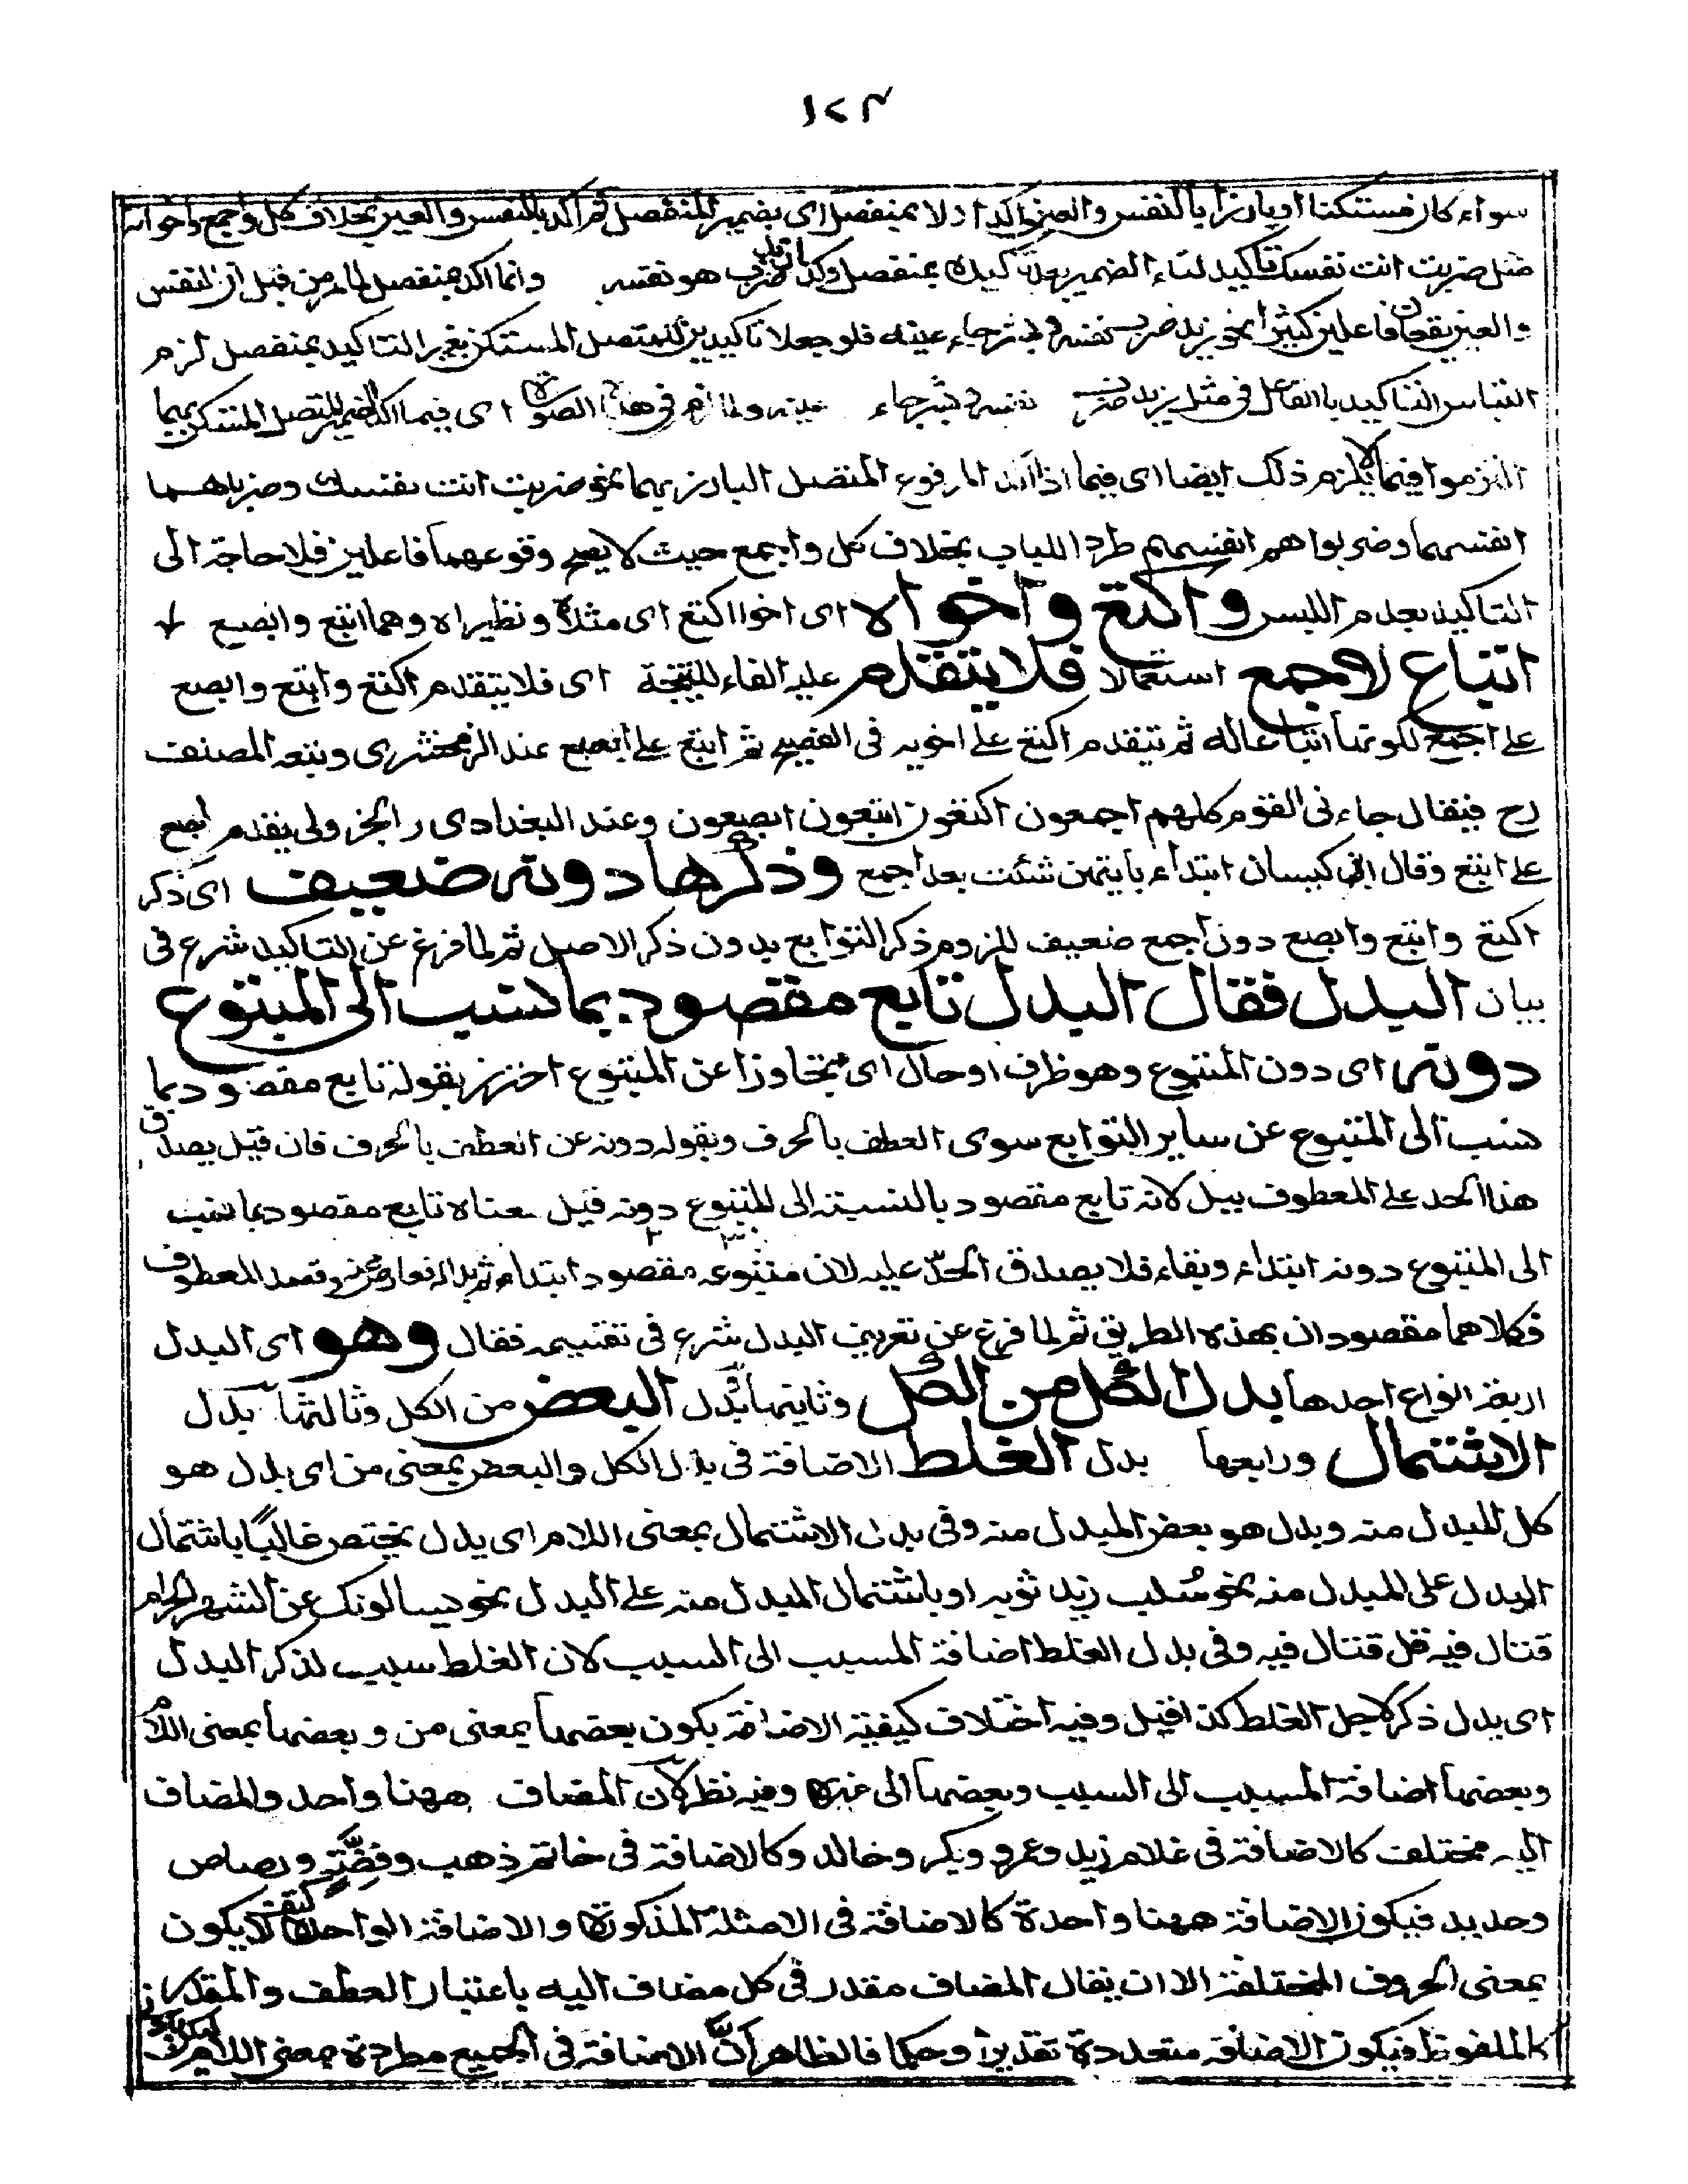 ١٢٣
سواء كان مستكنا او بارزا بالنفس والعين اكد اولا بمنفصل اى بضمير المنفصل ثم اكد بالنفس والعين بخلاف كل واجمع واخواته
مثل ضربت انت نفسك تاكيد لتاء الضمير بعد تاكيده بمنفصل وكذا زيد ضرب هو نفسه وانما اكد بمنفصل لما مر من قبل ان النفس
والعين يقعان فاعلين كثيرا نحو زيد ضرب نفسه وبشر جاء عينه فلو جعلا تاكيدين للمتصل المستكن بغير التاكيد بمنفصل لزم
التباس التاكيد بالفاعل فى مثل زيد ضرب نفسه وبشر جاء عينه ولما لزم فى هذه الصورة اى فيما اكد الضمير المتصل المستكن بهما
التزموا فيما لا يلزم ذلك ايضا اى فيما اذا اكد المرفوع المتصل البارز بهما نحو ضربت انت نفسك وضرباهما
انفسهما وضربوا هم انفسهم طردا للباب بخلاف كل واجمع حيث لا يصح وقوعهما فاعلين فلا حاجة الى
التاكيد بعدم اللبس واكتع واخواه اى اخوا اكتع اى مثلاه ونظيراه وهما ابتع وابصع
اتباع لاجمع استعمالا فلا يتقدم عليه الفاء للنتيجة اى فلا يتقدم اكتع وابتع وابصع
على اجمع لكونها اتباعا له ثم يتقدم اكتع على اخويه فى الفصيح ثم ابتع على ابصع عند الزمخشرى وتبعه المصنف
رح فيقال جاءنى القوم كلهم اجمعون اكتعون ابتعون ابصعون وعند البغدادى والجزولى يقدم ابصع
على ابتع وقال ابن كيسان ابتداء بايتهن شئت بعد اجمع وذكرها دونه ضعيف اى ذكر
اكتع وابتع وابصع دون اجمع ضعيف للزوم ذكر التوابع بدون ذكر الاصل ثم لما فرغ عن التاكيد شرع فى
بيان البدل فقال البدل تابع مقصود بما نسب الى المتبوع
دونه اى دون المتبوع وهو ظرف او حال اى متجاوزا عن المتبوع احترز بقوله تابع مقصود بما
نسب الى المتبوع عن ساير التوابع سوى العطف بالحرف وبقوله دونه عن العطف بالحرف فان قيل يصدق
هذا الحد على المعطوف ببل لانه تابع مقصود بالنسبة الى المتبوع دونه قيل معناه تابع مقصود بما نسب
الى المتبوع دونه ابتداء وبقاء فلا يصدق الحد عليه لان متبوعه مقصود ابتداء ثم بدا له فاعرض وقصد المعطوف
فكلاهما مقصودان بهذه الطريق ثم لما فرغ عن تعريف البدل شرع فى تقسيمه فقال وهو اى البدل
اربعة انواع احدها بدل الكل من الكل وثانيها بدل البعض من الكل وثالثها بدل
الاشتمال ورابعها بدل الغلط الاضافة فى بدل الكل والبعض بمعنى من اى بدل هو
كل المبدل منه وبدل هو بعض المبدل منه وفى بدل الاشتمال بمعنى اللام اى بدل يختص غالبًا باشتمال
البدل على المبدل منه نحو سُلب زيد ثوبه او باشتمال المبدل منه على البدل نحو يسالونك عن الشهر الحرام
قتال فيه قل قتال فيه وفى بدل الغلط اضافة المسبب الى السبب لان الغلط سبب لذكر البدل
اى بدل ذكر لاجل الغلط كذا قيل وفيه اختلاف كيفية الاضافة بكون بعضها بمعنى من وبعضها بمعنى اللام
وبعضها اضافة المسبب الى السبب وبعضها الى غيره وفيه نظر لان المضاف ههنا واحد والمضاف
اليه مختلف كالاضافة فى غلام زيد وعمرو وبكر وخالد وكالاضافة فى خاتم ذهب وفضّةٍ ورصاص
وحديد فيكون الاضافة ههنا واحدة كالاضافة فى الامثلة المذكورة والاضافة الواحدة كيف لا يكون
بمعنى الحروف المختلفة الا ان يقال المضاف مقدر فى كل مضاف اليه باعتبار العطف والمقدر
كالملفوظ فيكون الاضافة متعددة تقديرا وحكما فالظاهر انّ الاضافة فى الجميع مطردة بمعنى اللام